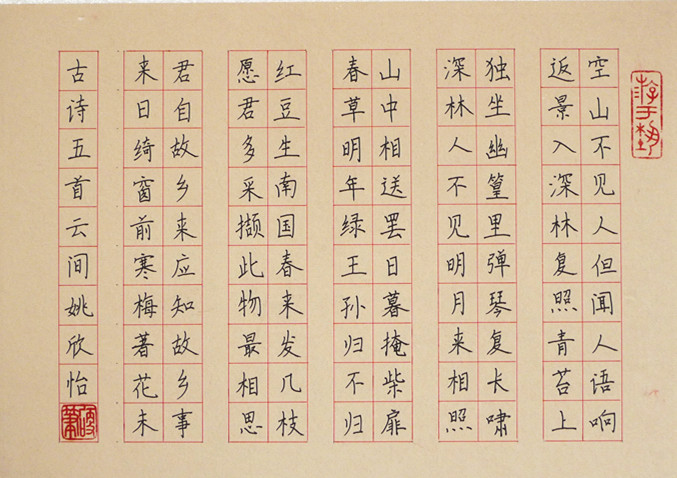 空山不见人但闻人语响
返景入深林复照青苔上
独坐幽篁里弹琴复长啸
深林人不见明月来相照
山中相送罢日暮掩柴扉
春草明年绿王孙归不归
红豆生南国春来发几枝
愿君多采撷此物最相思
君自故乡来应知故乡事
来日绮窗前寒梅著花未
古诗五首云间姚欣怡